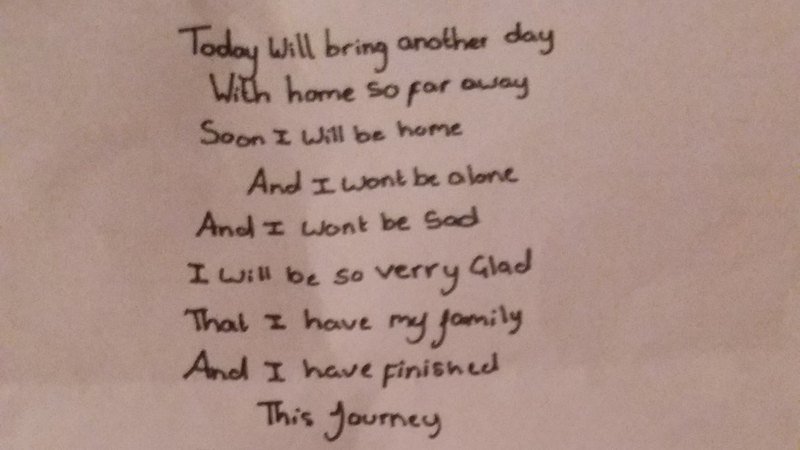 Today Will bring another day
With home so far away
Soon I Will be home
And I wont be alone
And I wont be Sad
I will be so verry Glad
That I have my family
And I have finished
This Journey